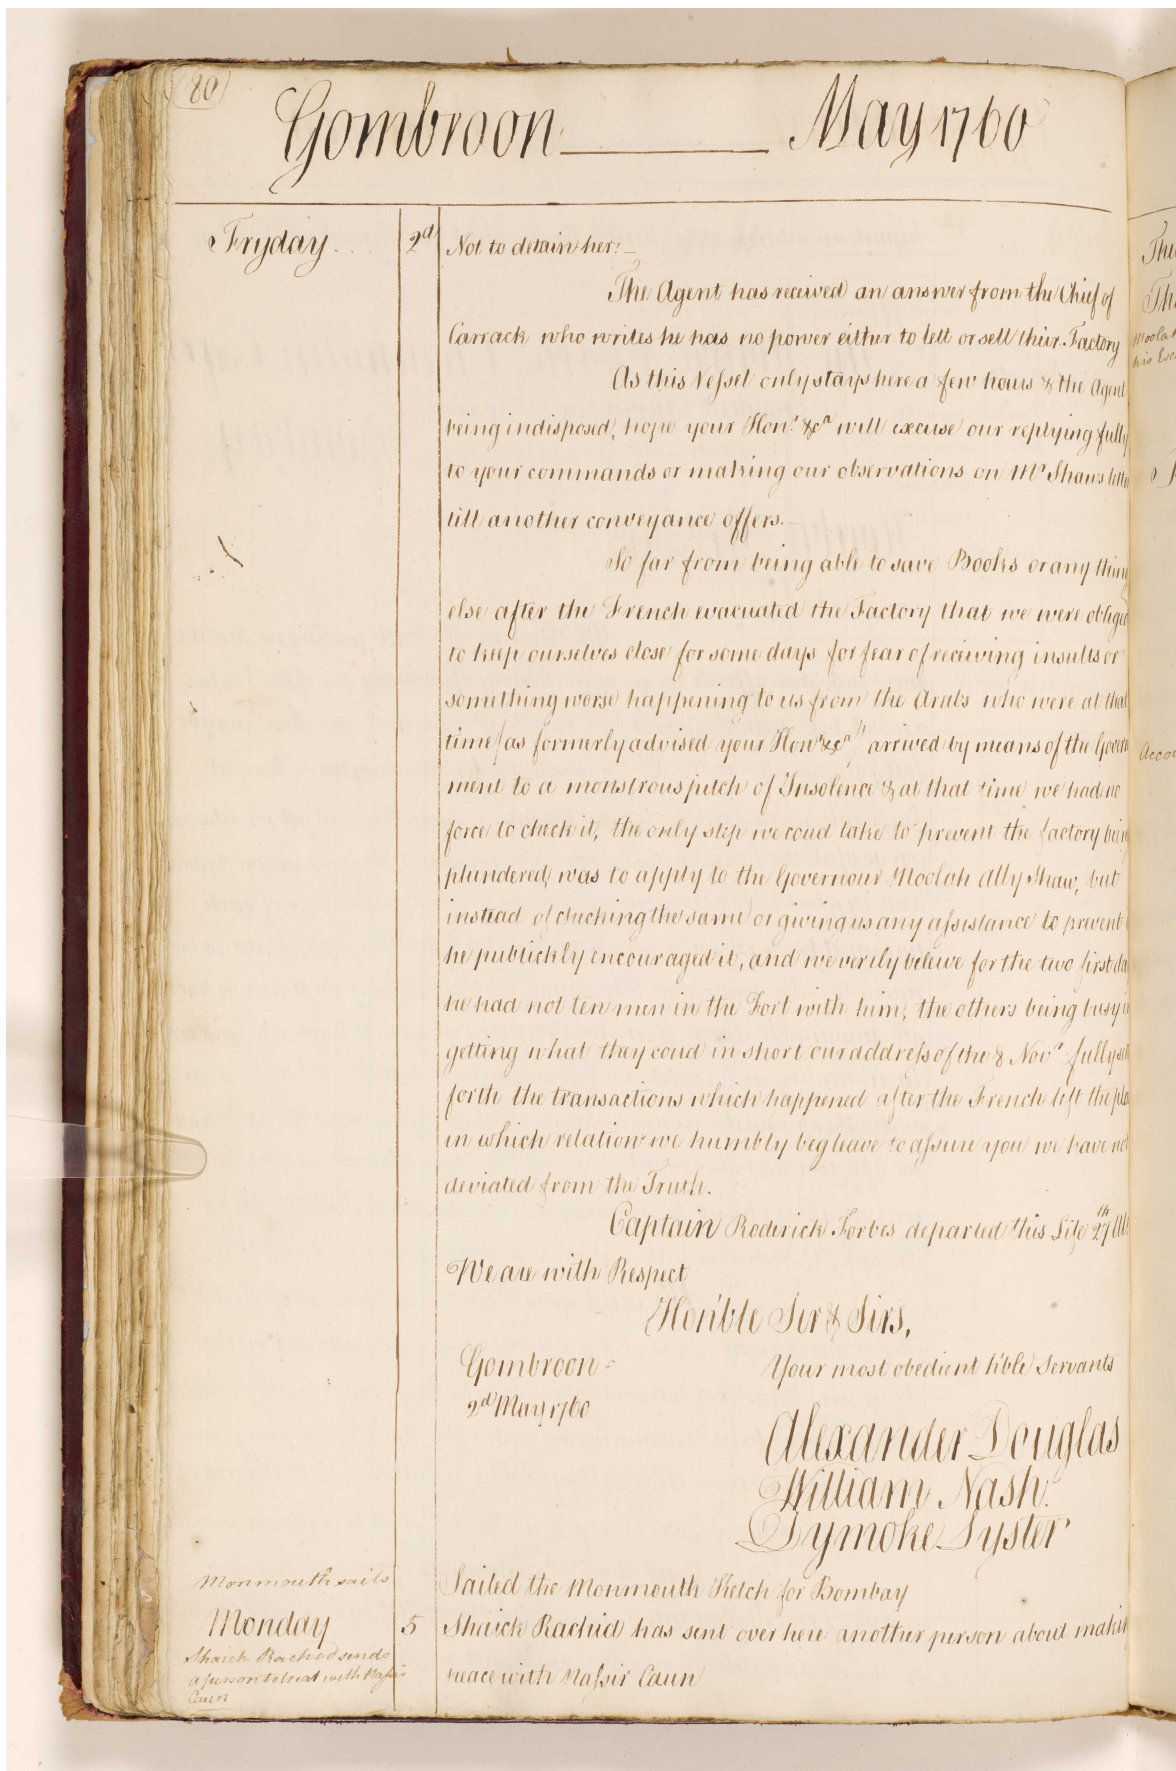 (80)
Gombroon ______ May 1760
Fryday .. 2d Not to detain her. _
The Agent has received an answer from the Chief of
Carrack who writes he has no power either to lett or sell their Factory
As this Vessel only stays here a few hours & the Agent
being indisposed, hope your Honr. &ca will excuse our replying fully
to your commands or making our observations on Mr Shaws
till another conveyance offers._
So far from being able to save Books or any thing
else after the French evacuated the Factory that we were obliged
to keep ourselves close for some days for fear of receiving insults or
something worse happening to us from the Arabs who were at that
time (as formerly advised your Honr &ca) arrived by means of the Govern
ment to a monstrous pitch of Insolence & at that time we had no
force to check it, the only step we coud take to prevent the factory being
plundered, was to apply to the Governour Moolah Ally Shaw, but
instead of checking the same or giving us any assistance to prevent
he publickly encouraged it, and we verily beleive for the two first da
he had not ten men in the Fort with him, the others being busy i
getting what they coud in short our address of the 8 Novr fully
forth the transactions which happened after the French left the pla
in which relation we humbly beg leave to assure you we have not
deviated from the Truth.
Captain Roderick Forbes departed this Life 27th Ul
We are with Respect
Hon'ble Sir & Sirs,
Gombroon Your most obedient h'ble Servants
2d May 1760
Alexander Douglas
William Nash.
Dymoke Lyster
Monmouth sails Sailed the Monmouth Ketch for Bombay
Monday 5 Shaick Rachid has sent over here another person about makin
Shaick Rachid sends
a person to treat with Nassir peace with Nassir Caun
Caun
The
Th
Moolah
his Esc
Acco